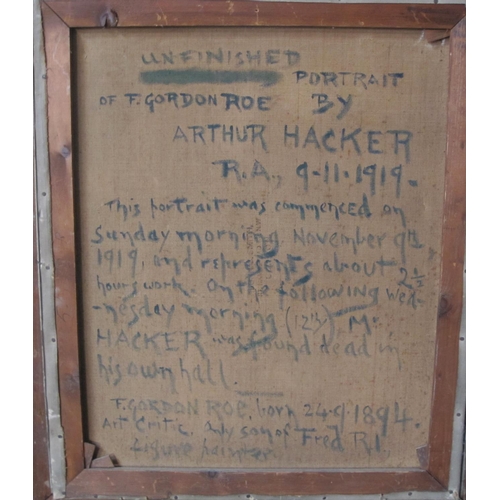 UNFINISHED
PORTRAIT
OF F. GORDON ROE BY
ARTHUR HACKER
R.A., 9-11-1919.
This portrait was commenced on
Sunday morning, November 9th
1919, and represents about 2½
hours work. On the following Wed-
-nesday morning (12th), Mr
HACKER was found dead in
his own hall.
F. GORDON ROE, born 24.9.1894.
Art Critic. Only son of Fred R.I.
figure painter.